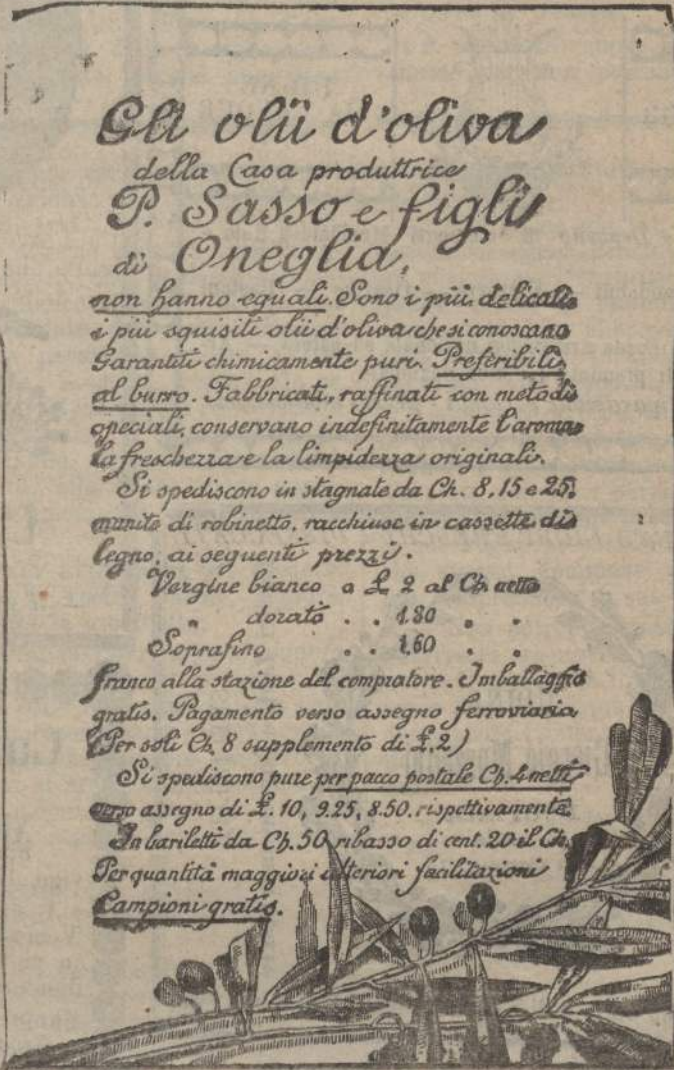 Gli olii d'oliva
della Casa produttrice
P. Sasso e figli
di Oneglia,
non hanno eguali. Sono i più delicati
i più squisiti olii d'oliva che si conoscano
Garantiti chimicamente puri. Preferibili
al burro. Fabbricati, raffinati con metodi
speciali, conservano indefinitamente l'aroma
la freschezza e la limpidezza originali.
Si spediscono in stagnate da Ch. 8, 15 e 25,
munite di robinetto, racchiuse in cassette di
legno, ai seguenti prezzi.
Vergine bianco a £ 2 al Ch. netto
" dorato . . 1.80 " "
Soprafino . . 1.60 " "
franco alla stazione del compratore. Imballaggio
gratis. Pagamento verso assegno ferroviario
(Per soli Ch. 8 supplemento di £. 2)
Si spediscono pure per pacco postale Ch. 4 netti
verso assegno di £. 10, 9.25, 8.50. rispettivamente.
In bariletti da Ch. 50 ribasso di cent. 20 il Ch.
Per quantità maggiori ulteriori facilitazioni
Campioni gratis.